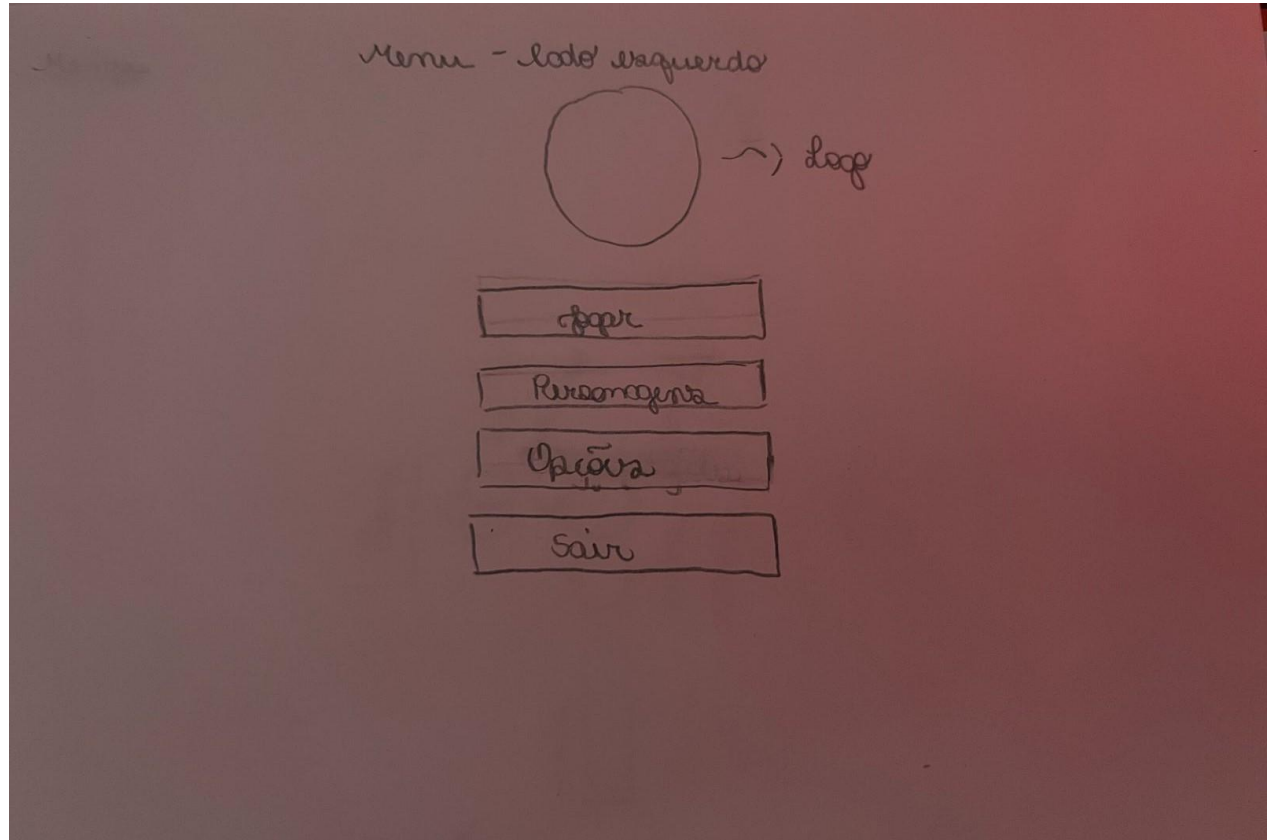 Menu - lado esquerdo
Logo
Jogar
Personagens
Opções
Sair